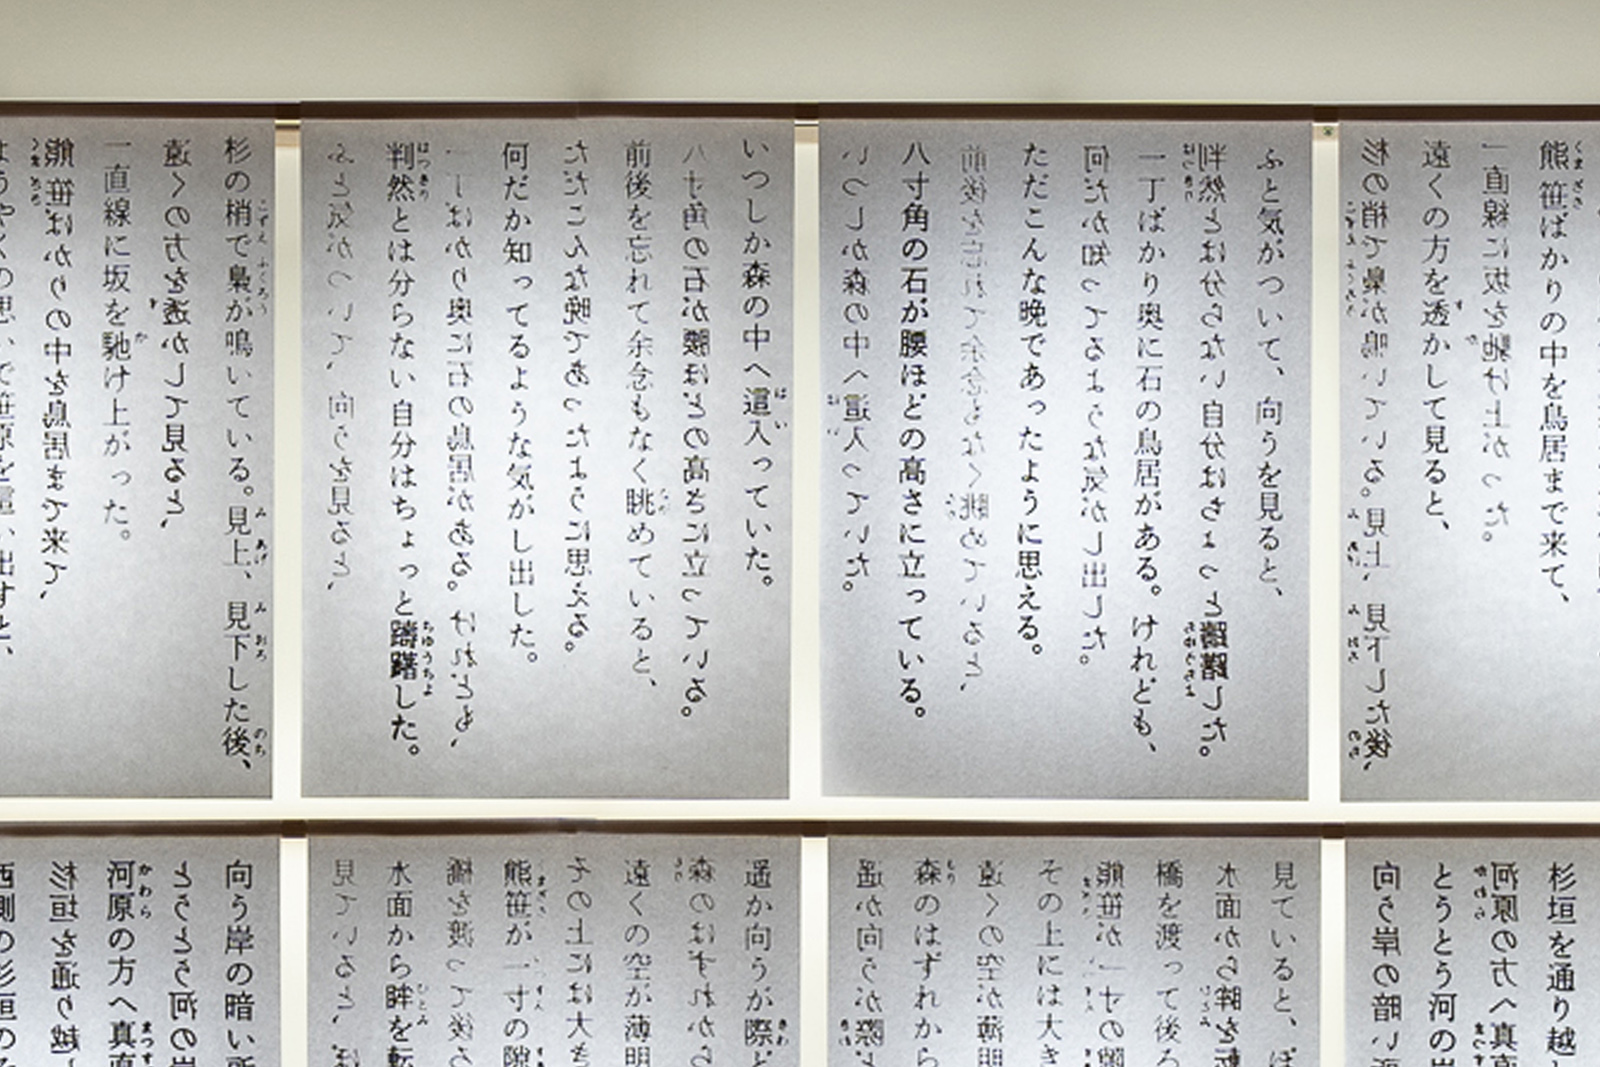 熊笹ばかりの中を鳥居まで来て、
一直線に坂を馳け上がった。
遠くの方を透かして見ると、
杉の梢で梟が鳴いている。見上、見下した後、
ふと気がついて、向うを見ると、
判然とは分らない自分はちょっと躊躇した。
一丁ばかり奥に石の鳥居がある。けれども、
何だか知ってるような気がし出した。
ただこんな晩であったように思える。
前後を忘れて余念もなく眺めていると、
八寸角の石が腰ほどの高さに立っている。
いつしか森の中へ這入っていた。
いつしか森の中へ這入っていた。
八寸角の石が腰ほどの高さに立っている。
前後を忘れて余念もなく眺めていると、
ただこんな晩であったように思える。
何だか知ってるような気がし出した。
一丁ばかり奥に石の鳥居がある。けれども、
判然とは分らない自分はちょっと躊躇した。
ふと気がついて、向うを見ると、
杉の梢で梟が鳴いている。見上、見下した後、
遠くの方を透かして見ると、
一直線に坂を馳け上がった。
熊笹ばかりの中を鳥居まで来て、
杉垣を通り越
河原の方へ真直
とうとう河の
向う岸の暗い
見ていると、
水面から眸を転
橋を渡って後ろ
熊笹が一寸の隙
その上には大き
遠くの空が薄明
森のはずれから
遥か向うが際
遥か向うが際
森のはずれから
遠くの空が薄明
その上には大き
熊笹が一寸の隙
橋を渡って後ろ
水面から眸を転
見ていると、
向う岸の暗い
とうとう河の
河原の方へ真直
杉垣を通り越
西側の杉垣の